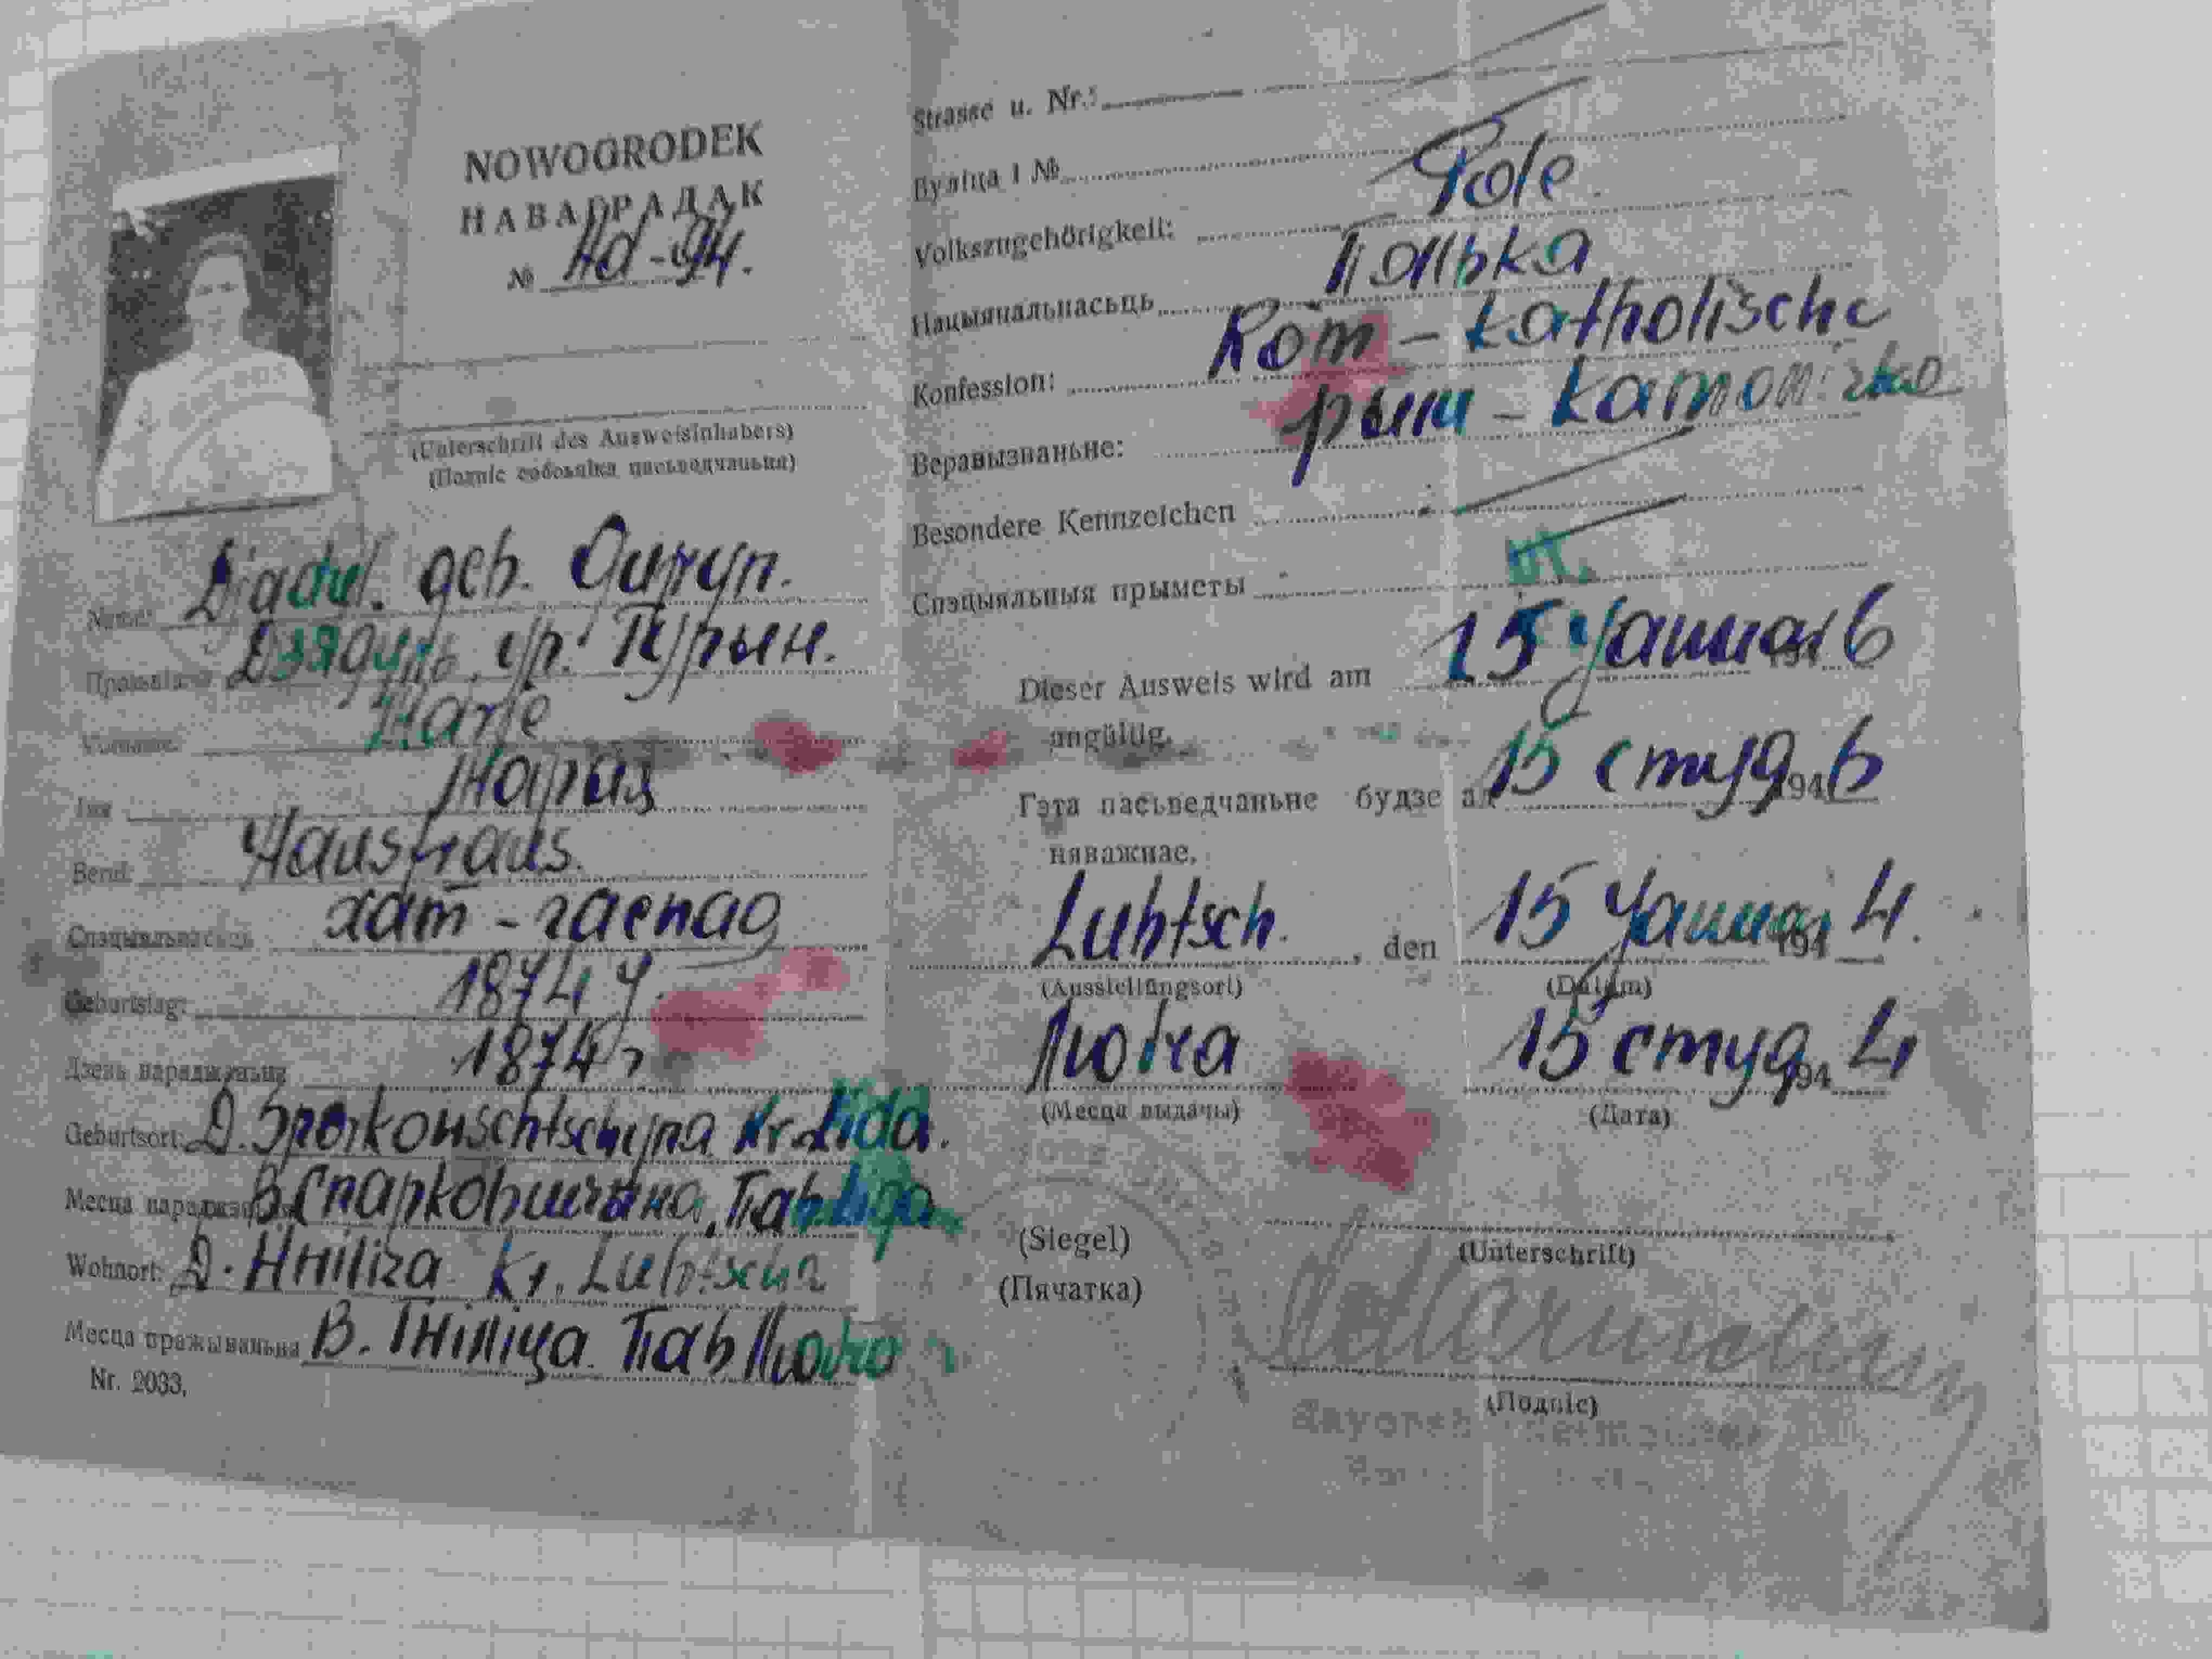 NOWOGRODEK
НАВАГРАДАК
№ Hd-94.
(Unterschrift des Ausweisinhabers)
(Подпіс собсьніка пасьведчаньня)
Name: Djadul. geb.
Дзядуль. ур. Пурын.
Vorname: Marie
Імя Марыя
Beruf: Hausfraus.
Спэцыяльнасьць хат-гаспад
Geburtstag: 1874 J.
Дзень нараджэньня 1874 г
Geburtsort: D. Kr. Lida.
Месца нараджэньня В Ліда
Wohnort: D. Hniliza Kr. Lubtsch
Месца пражываньня В. Гніліца Паб Любча
Nr. 2033,
Strasse u. Nr.
Вуліца і №
Volkszugehörigkeit: Pole
Нацыянальнасьць Полька
Konfession: Röm-katholische
Веравызнаньне: рым-
Besondere Kennzeichen
Спэцыяльныя прыметы
Dieser Ausweis wird am 15 Januar 1946
ungültig.
Гэта пасьведчаньне будзе ад 15 студ 1946
няважнае.
Lubtsch. , den 15 Januar 1944.
(Ausstellungsort) (Datum)
Любча 15 студ 1944
(Месца выдачы) (Дата)
(Siegel) (Unterschrift)
(Пячатка)
(Подпіс)